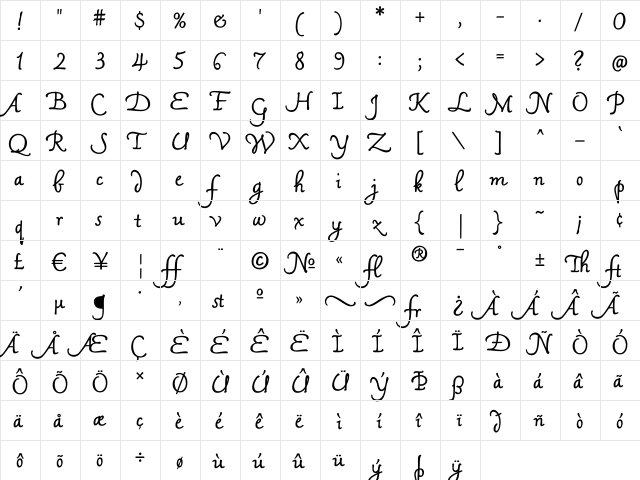 ! " # $ % & ' ( ) * + , - . / 0
1 2 3 4 5 6 7 8 9 : ; < = > ? @
A B C D E F G H I J K L M N O P
Q R S T U V W X Y Z [ \ ] ^ _ `
a b c d e f g h i j k l m n o p
q r s t u v w x y z { | } ~ ¡ ¢
£ € ¥ ¦ ff ¨ © № « fl ® ¯ ° ± Th ft
´ µ ¶ · ¸ st º » fr ¿ À Á Â Ã
Ä Å Æ Ç È É Ê Ë Ì Í Î Ï Ð Ñ Ò Ó
Ô Õ Ö × Ø Ù Ú Û Ü Ý Þ ß à á â ã
ä å æ ç è é ê ë ì í î ï ñ ò ó
ô õ ö ÷ ø ù ú û ü ý þ ÿ